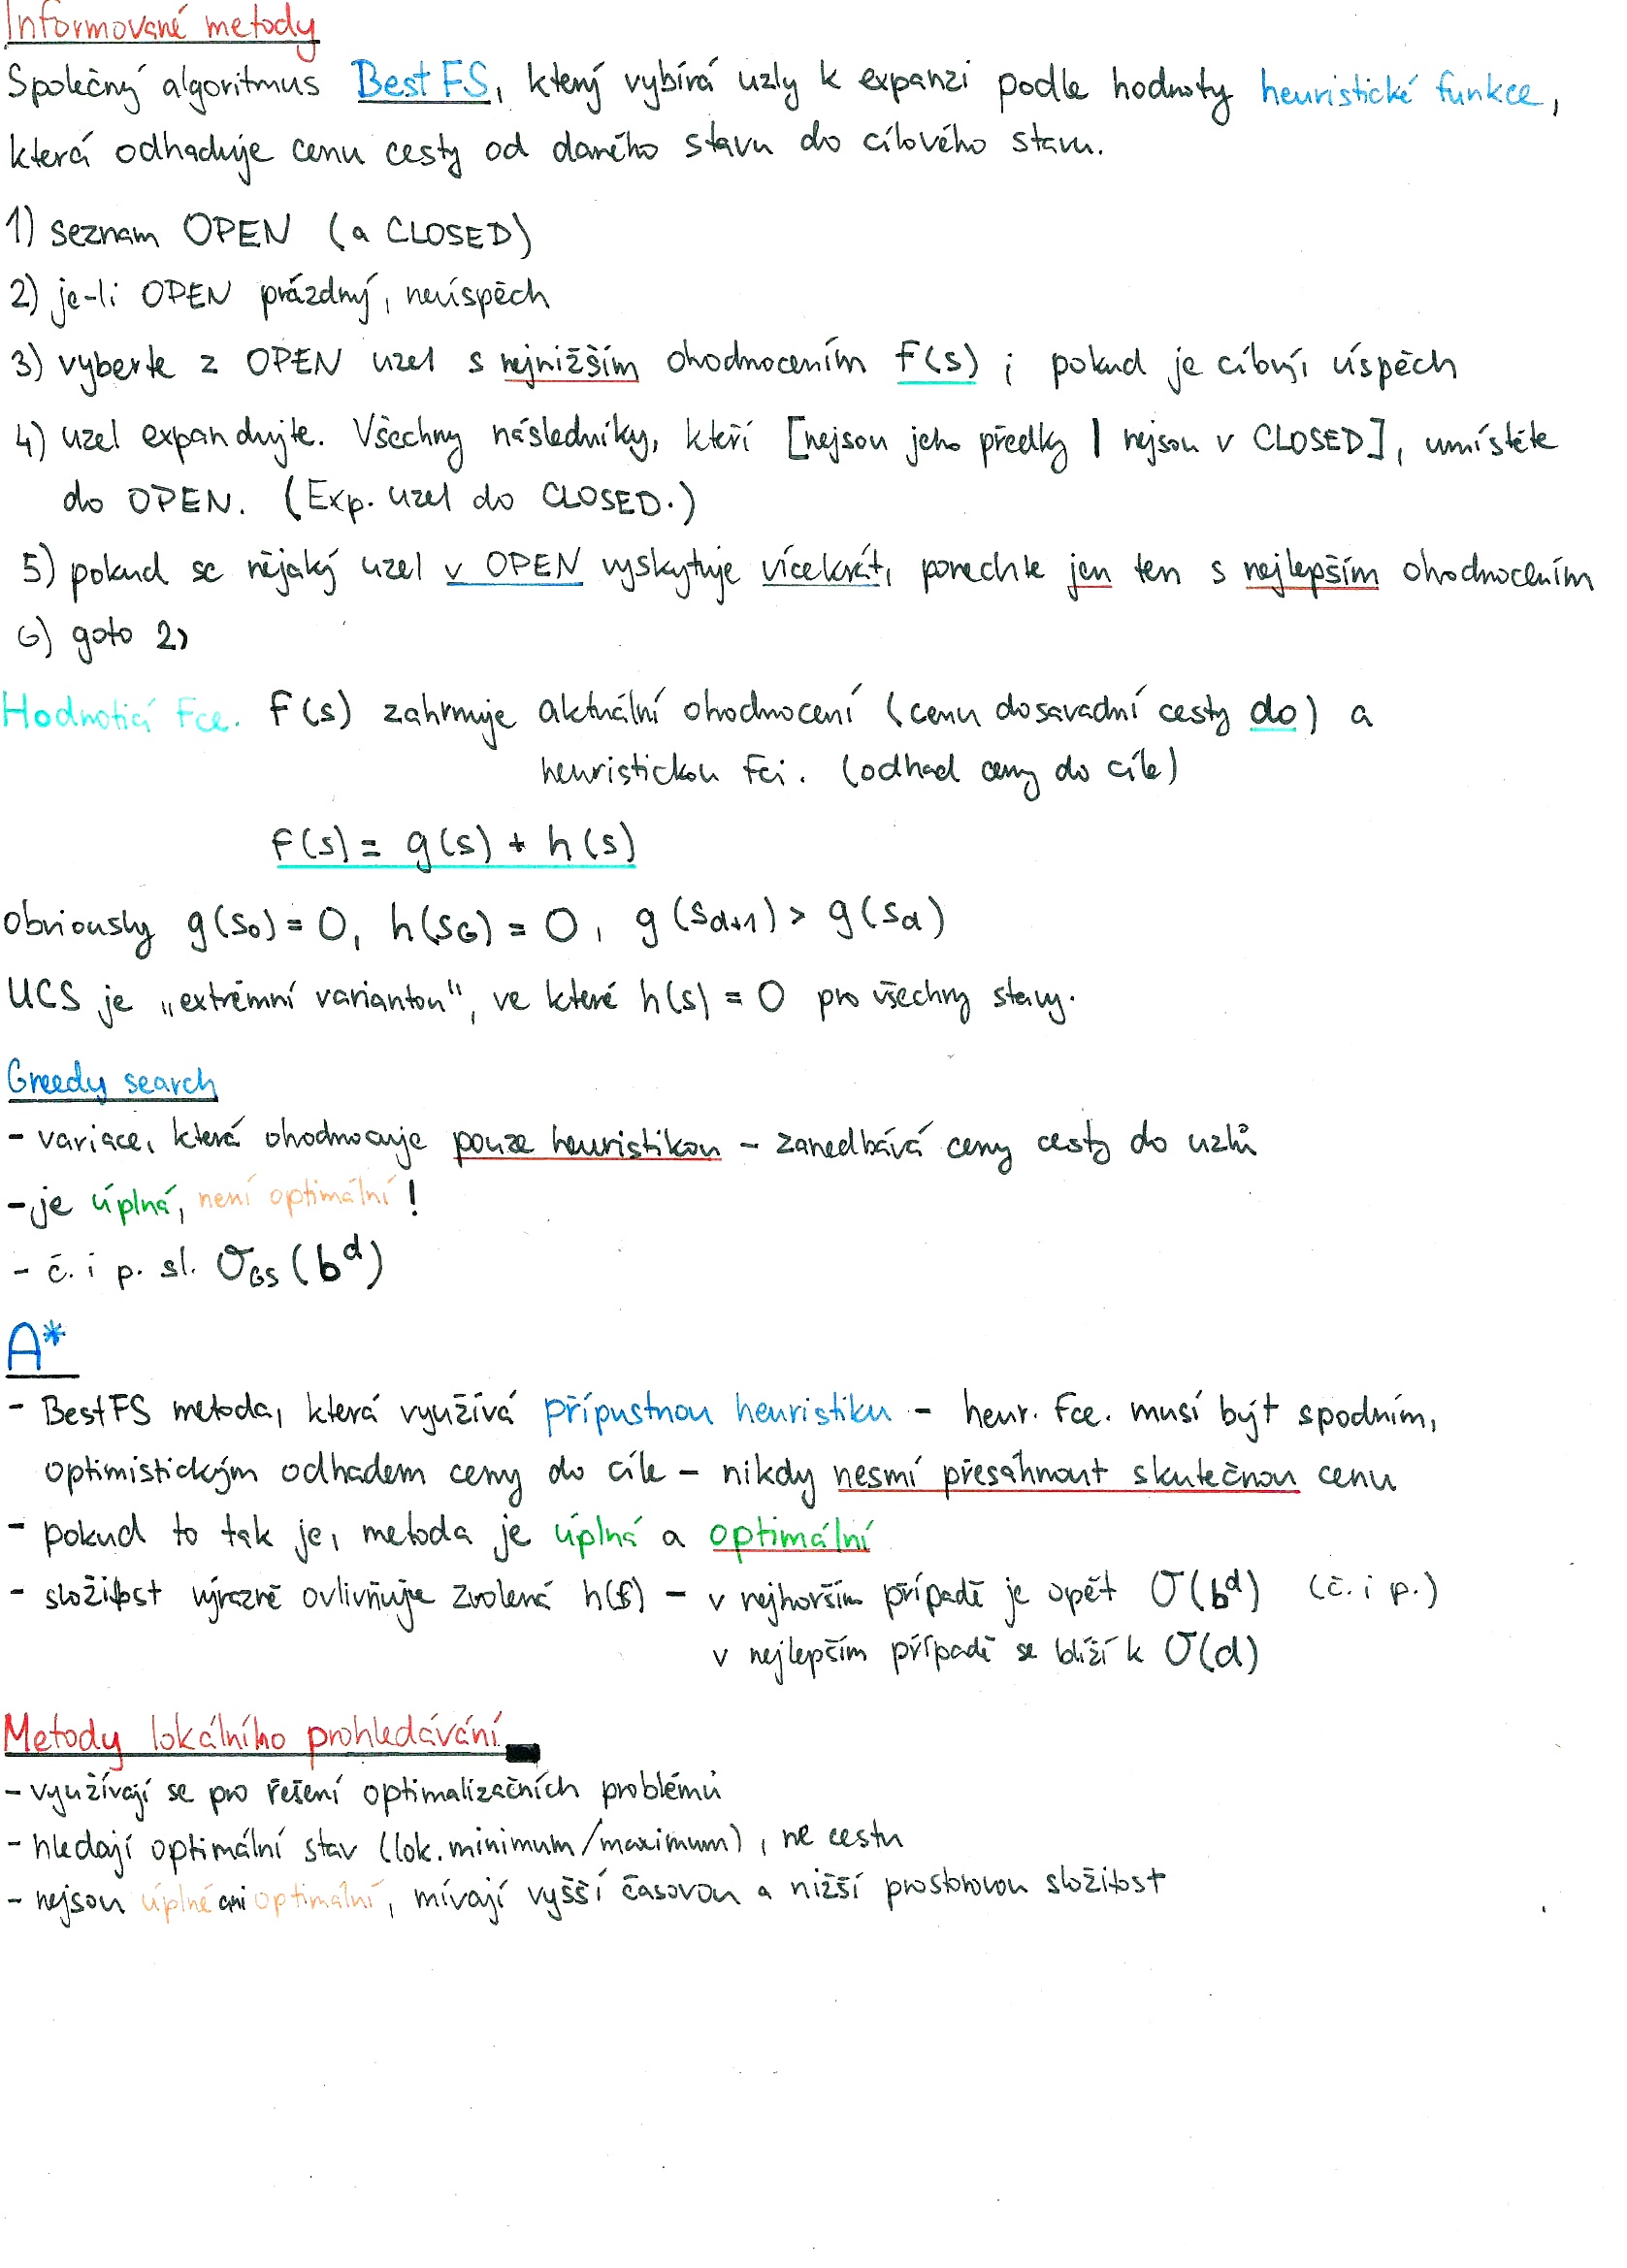 Informované metody
Společný algoritmus BestFS, který vybírá uzly k expanzi podle hodnoty heuristické funkce,
která odhaduje cenu cesty od daného stavu do cílového stavu.
1) seznam OPEN (a CLOSED)
2) je-li OPEN prázdný, neúspěch
3) vyberte z OPEN uzel s nejnižším ohodnocením f(s) ; pokud je cílový úspěch
4) uzel expandujte. Všechny následníky, kteří [nejsou jeho předky | nejsou v CLOSED], umístěte
do OPEN. (Exp. uzel do CLOSED.)
5) pokud se nějaký uzel v OPEN vyskytuje vícekrát, ponechte jen ten s nejlepším ohodnocením
6) goto 2)
Hodnotící fce. f(s) zahrnuje aktuální ohodnocení (cenu dosavadní cesty do) a
heuristickou fci. (odhad ceny do cíle)
f(s) = g(s) + h(s)
Obviously g(s₀) = 0, h(s_G) = 0, g(s_{d+1}) > g(s_d)
UCS je „extrémní variantou", ve které h(s) = 0 pro všechny stavy.
Greedy search
- variace, která ohodnocuje pouze heuristikou - zanedbává ceny cesty do uzlů
- je úplná, není optimální!
- č. i p. sl. O_GS (b^d)
A*
- BestFS metoda, která využívá přípustnou heuristiku - heur. fce. musí být spodním,
optimistickým odhadem ceny do cíle - nikdy nesmí přesáhnout skutečnou cenu
- pokud to tak je, metoda je úplná a optimální
- složitost výrazně ovlivňuje zvolená h(s) - v nejhorším případě je opět O(b^d) (č. i p.)
v nejlepším případě se blíží k O(d)
Metody lokálního prohledávání
- využívají se pro řešení optimalizačních problémů
- hledají optimální stav (lok. minimum/maximum), ne cestu
- nejsou úplné ani optimální, mívají vyšší časovou a nižší prostorovou složitost